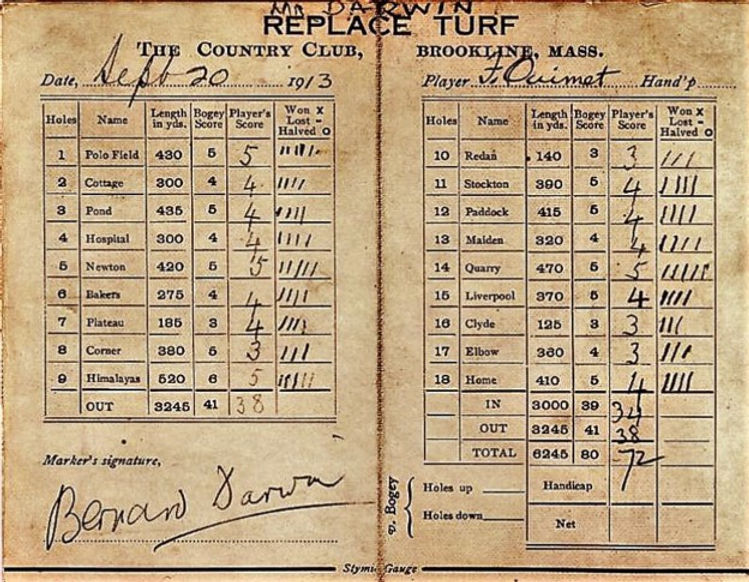 Mr DARWIN
REPLACE TURF
THE COUNTRY CLUB, BROOKLINE, MASS.
Date, Sept 20 1913 Player F. Ouimet Hand'p
Holes Name Length in yds. Bogey Score Player's Score Won X Lost - Halved O
1 Polo Field 430 5 5 IIIII
2 Cottage 300 4 4 IIII
3 Pond 435 5 4 IIII
4 Hospital 300 4 4 IIII
5 Newton 420 5 5 IIIII
6 Bakers 275 4 4 IIII
7 Plateau 185 3 4 IIII
8 Corner 380 5 3 III
9 Himalayas 520 6 5 IIIII
OUT 3245 41 38
Marker's signature,
Bernard Darwin
Holes Name Length in yds. Bogey Score Player's Score Won X Lost - Halved O
10 Redan 140 3 3 III
11 Stockton 390 5 4 IIII
12 Paddock 415 5 4 IIII
13 Maiden 320 4 4 IIII
14 Quarry 470 5 5 IIIII
15 Liverpool 370 5 4 IIII
16 Clyde 125 3 3 III
17 Elbow 360 4 3 III
18 Home 410 5 4 IIII
IN 3000 39 34
OUT 3245 41 38
TOTAL 6245 80 72
v. Bogey
Holes up Handicap
Holes down Net
Stymie Gauge